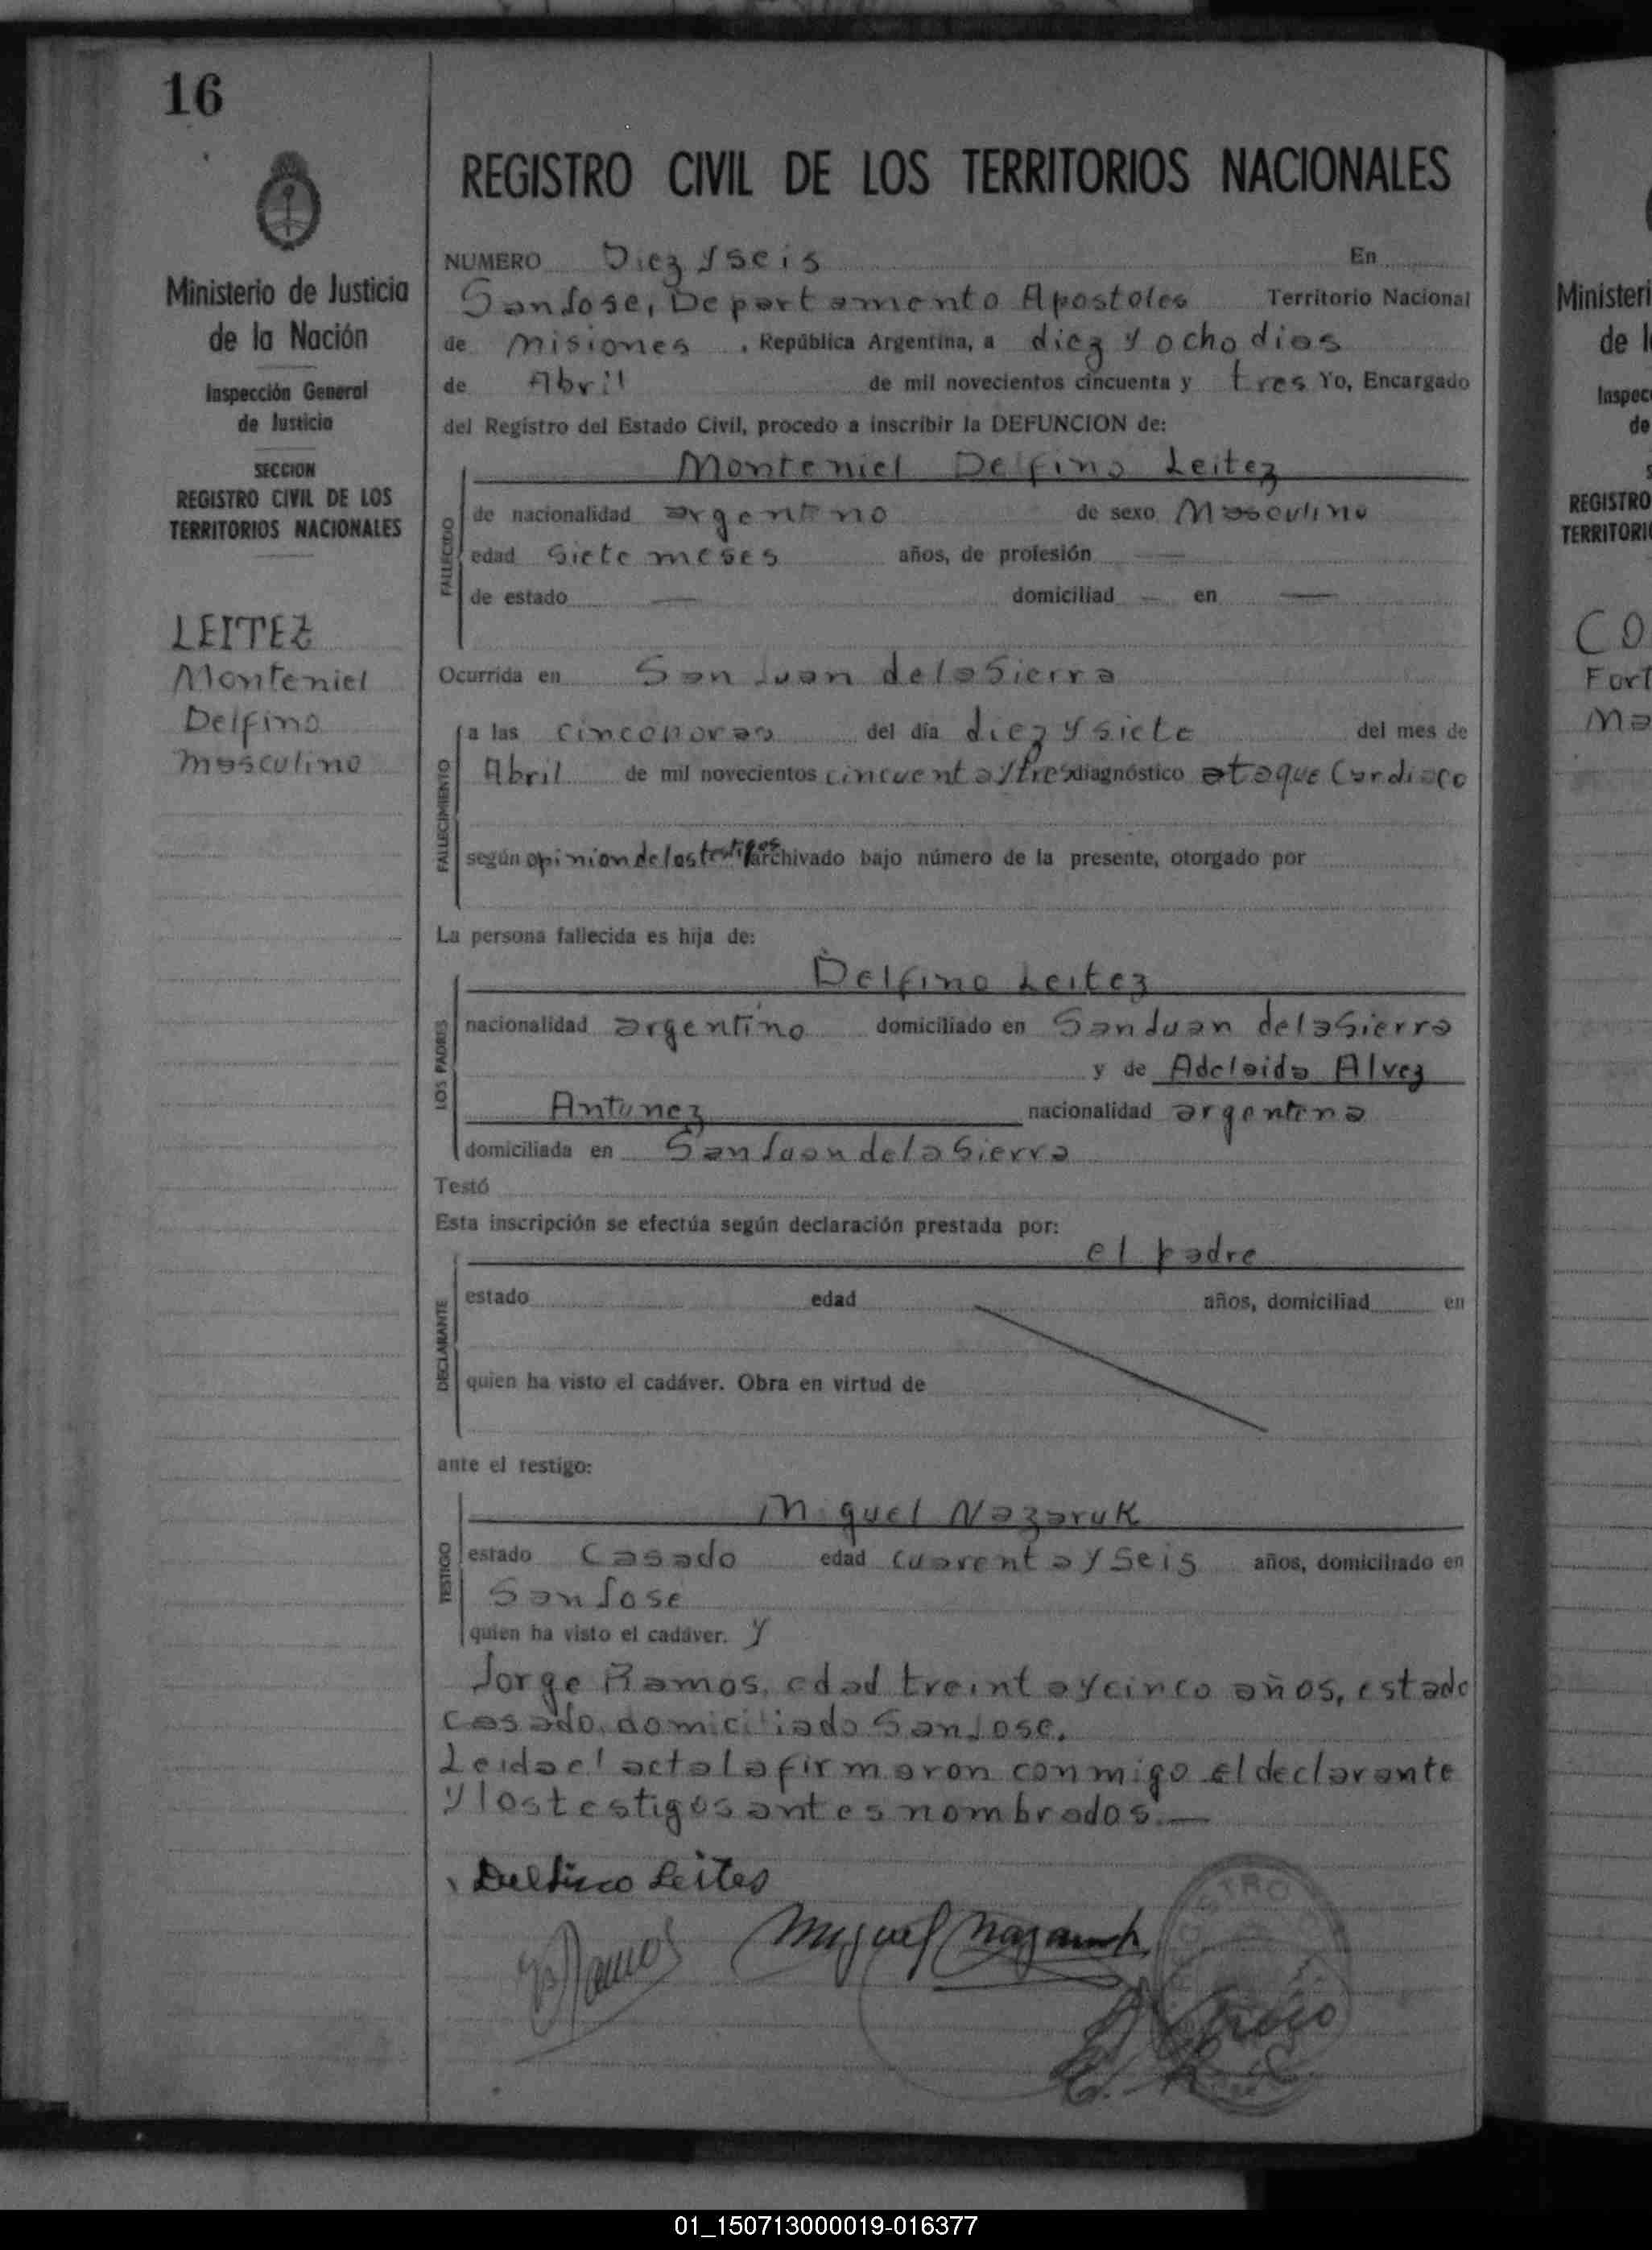 16
REGISTRO CIVIL DE LOS TERRITORIOS NACIONALES
Ministerio de Justicia
de la Nación
Inspección General
de Justicia
SECCION
REGISTRO CIVIL DE LOS
TERRITORIOS NACIONALES
LEITEZ
Monteniel
Delfino
masculino
NUMERO Diez y seis En
San Jose, Departamento Apostoles Territorio Nacional
de Misiones, República Argentina, a diez y ocho dias
de Abril de mil novecientos cincuenta y tres Yo, Encargado
del Registro del Estado Civil, procedo a inscribir la DEFUNCION de:
Monteniel Delfino Leitez
FALLECIDO
de nacionalidad argentino de sexo Masculino
edad siete meses años, de profesión —
de estado — domiciliad — en —
Ocurrida en San Juan de la Sierra
FALLECIMIENTO
a las cinco horas del día diez y siete del mes de
Abril de mil novecientos cincuenta y tres diagnóstico ataque Cardiaco
según opinion de los testigos archivado bajo número de la presente, otorgado por
La persona fallecida es hija de:
LOS PADRES
Delfino Leitez
nacionalidad argentino domiciliado en San Juan de la Sierra
y de Adelaida Alvez
Antunez nacionalidad argentina
domiciliada en San Juan de la Sierra
Testó
Esta inscripción se efectúa según declaración prestada por:
DECLARANTE
el padre
estado edad años, domiciliad en
quien ha visto el cadáver. Obra en virtud de
ante el testigo:
TESTIGO
Miguel Nazaruk
estado Casado edad cuarenta y seis años, domiciliado en
San Jose
quien ha visto el cadáver. y
Jorge Ramos, edad treinta y cinco años, estado
casado, domiciliado San Jose.
Leida el acta la firmaron conmigo el declarante
y los testigos antes nombrados. —
Delfino Leites
Ramos
Miguel Nazaruk
Ministeri
de l
Inspec
de
REGISTRO
TERRITORI
CO
Fort
Ma
01_150713000019-016377